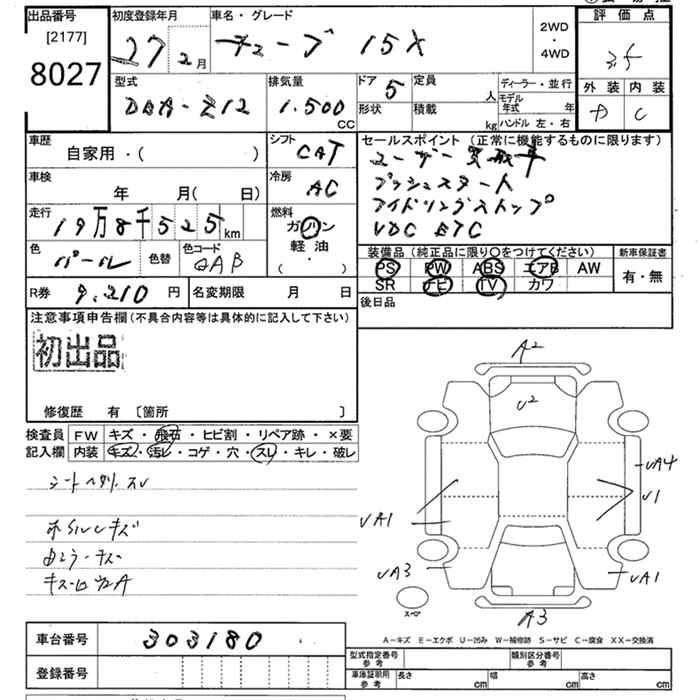 出品番号
[2177]
8027
初度登録年月
27 2月
車名・グレード
キューブ 15X
2WD
・
4WD
評価点
外装 内装
C
型式
DBA-Z12
排気量
1.500 CC
ドア 5
形状
定員 人
積載 kg
ディーラー・並行
モデル年式 年
ハンドル 左・右
車歴
自家用・( )
シフト CAT
セールスポイント (正常に機能するものに限ります)
ユーザー買取車
プッシュスタート
アイドリングストップ
VDC ETC
車検
年 月( 日)
冷房 AC
走行
19万8千525km
燃料
ガソリン
軽油
( ・ )
色 パール
色替
色コード QAB
装備品 (純正品に限り○をつけてください)
PS PW ABS エアB AW
SR ナビ TV カワ
新車保証書
有・無
R券 9,210円
名変期限 月 日
後日品
注意事項申告欄(不具合内容等は具体的に記入して下さい)
初出品
修復歴 有 〔箇所 〕
検査員
記入欄
FW キズ・飛石・ヒビ割・リペア跡・×要
内装 キズ・汚レ・コゲ・穴・スレ・キレ・破レ
シートヘタリ スレ
A2
U2
UA4
U1
UA1
UA3
UA1
スペア
A3
A－キズ E－エクボ U－凹み W－補修跡 S－サビ C－腐食 XX－交換済
車台番号 303180
登録番号
型式指定番号
参考
類別区分番号
参考
車庫証明用
参考
長さ cm
幅 cm
高さ cm